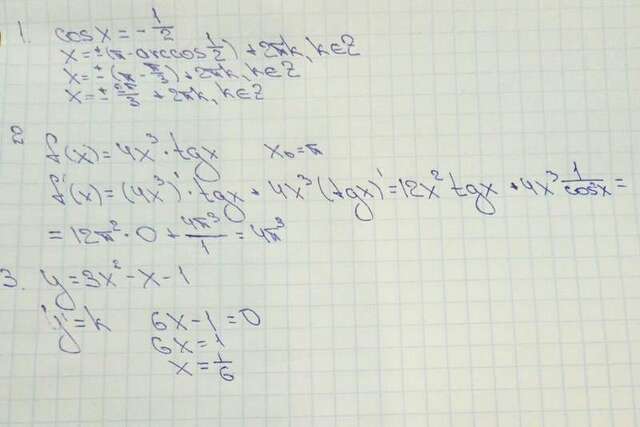 1. cos x = -1/2
x = ±(π - arccos 1/2) + 2πk, k∈Z
x = ±(π - π/3) + 2πk, k∈Z
x = ± 2π/3 + 2πk, k∈Z
2 f(x) = 4x³ · tgx x₀ = π
f'(x) = (4x³)' · tgx + 4x³ (tgx)' = 12x² tgx + 4x³ 1/cos²x =
= 12π² · 0 + 4π³/1 = 4π³
3. y = 3x² - x - 1
y' = k 6x - 1 = 0
6x = 1
x = 1/6